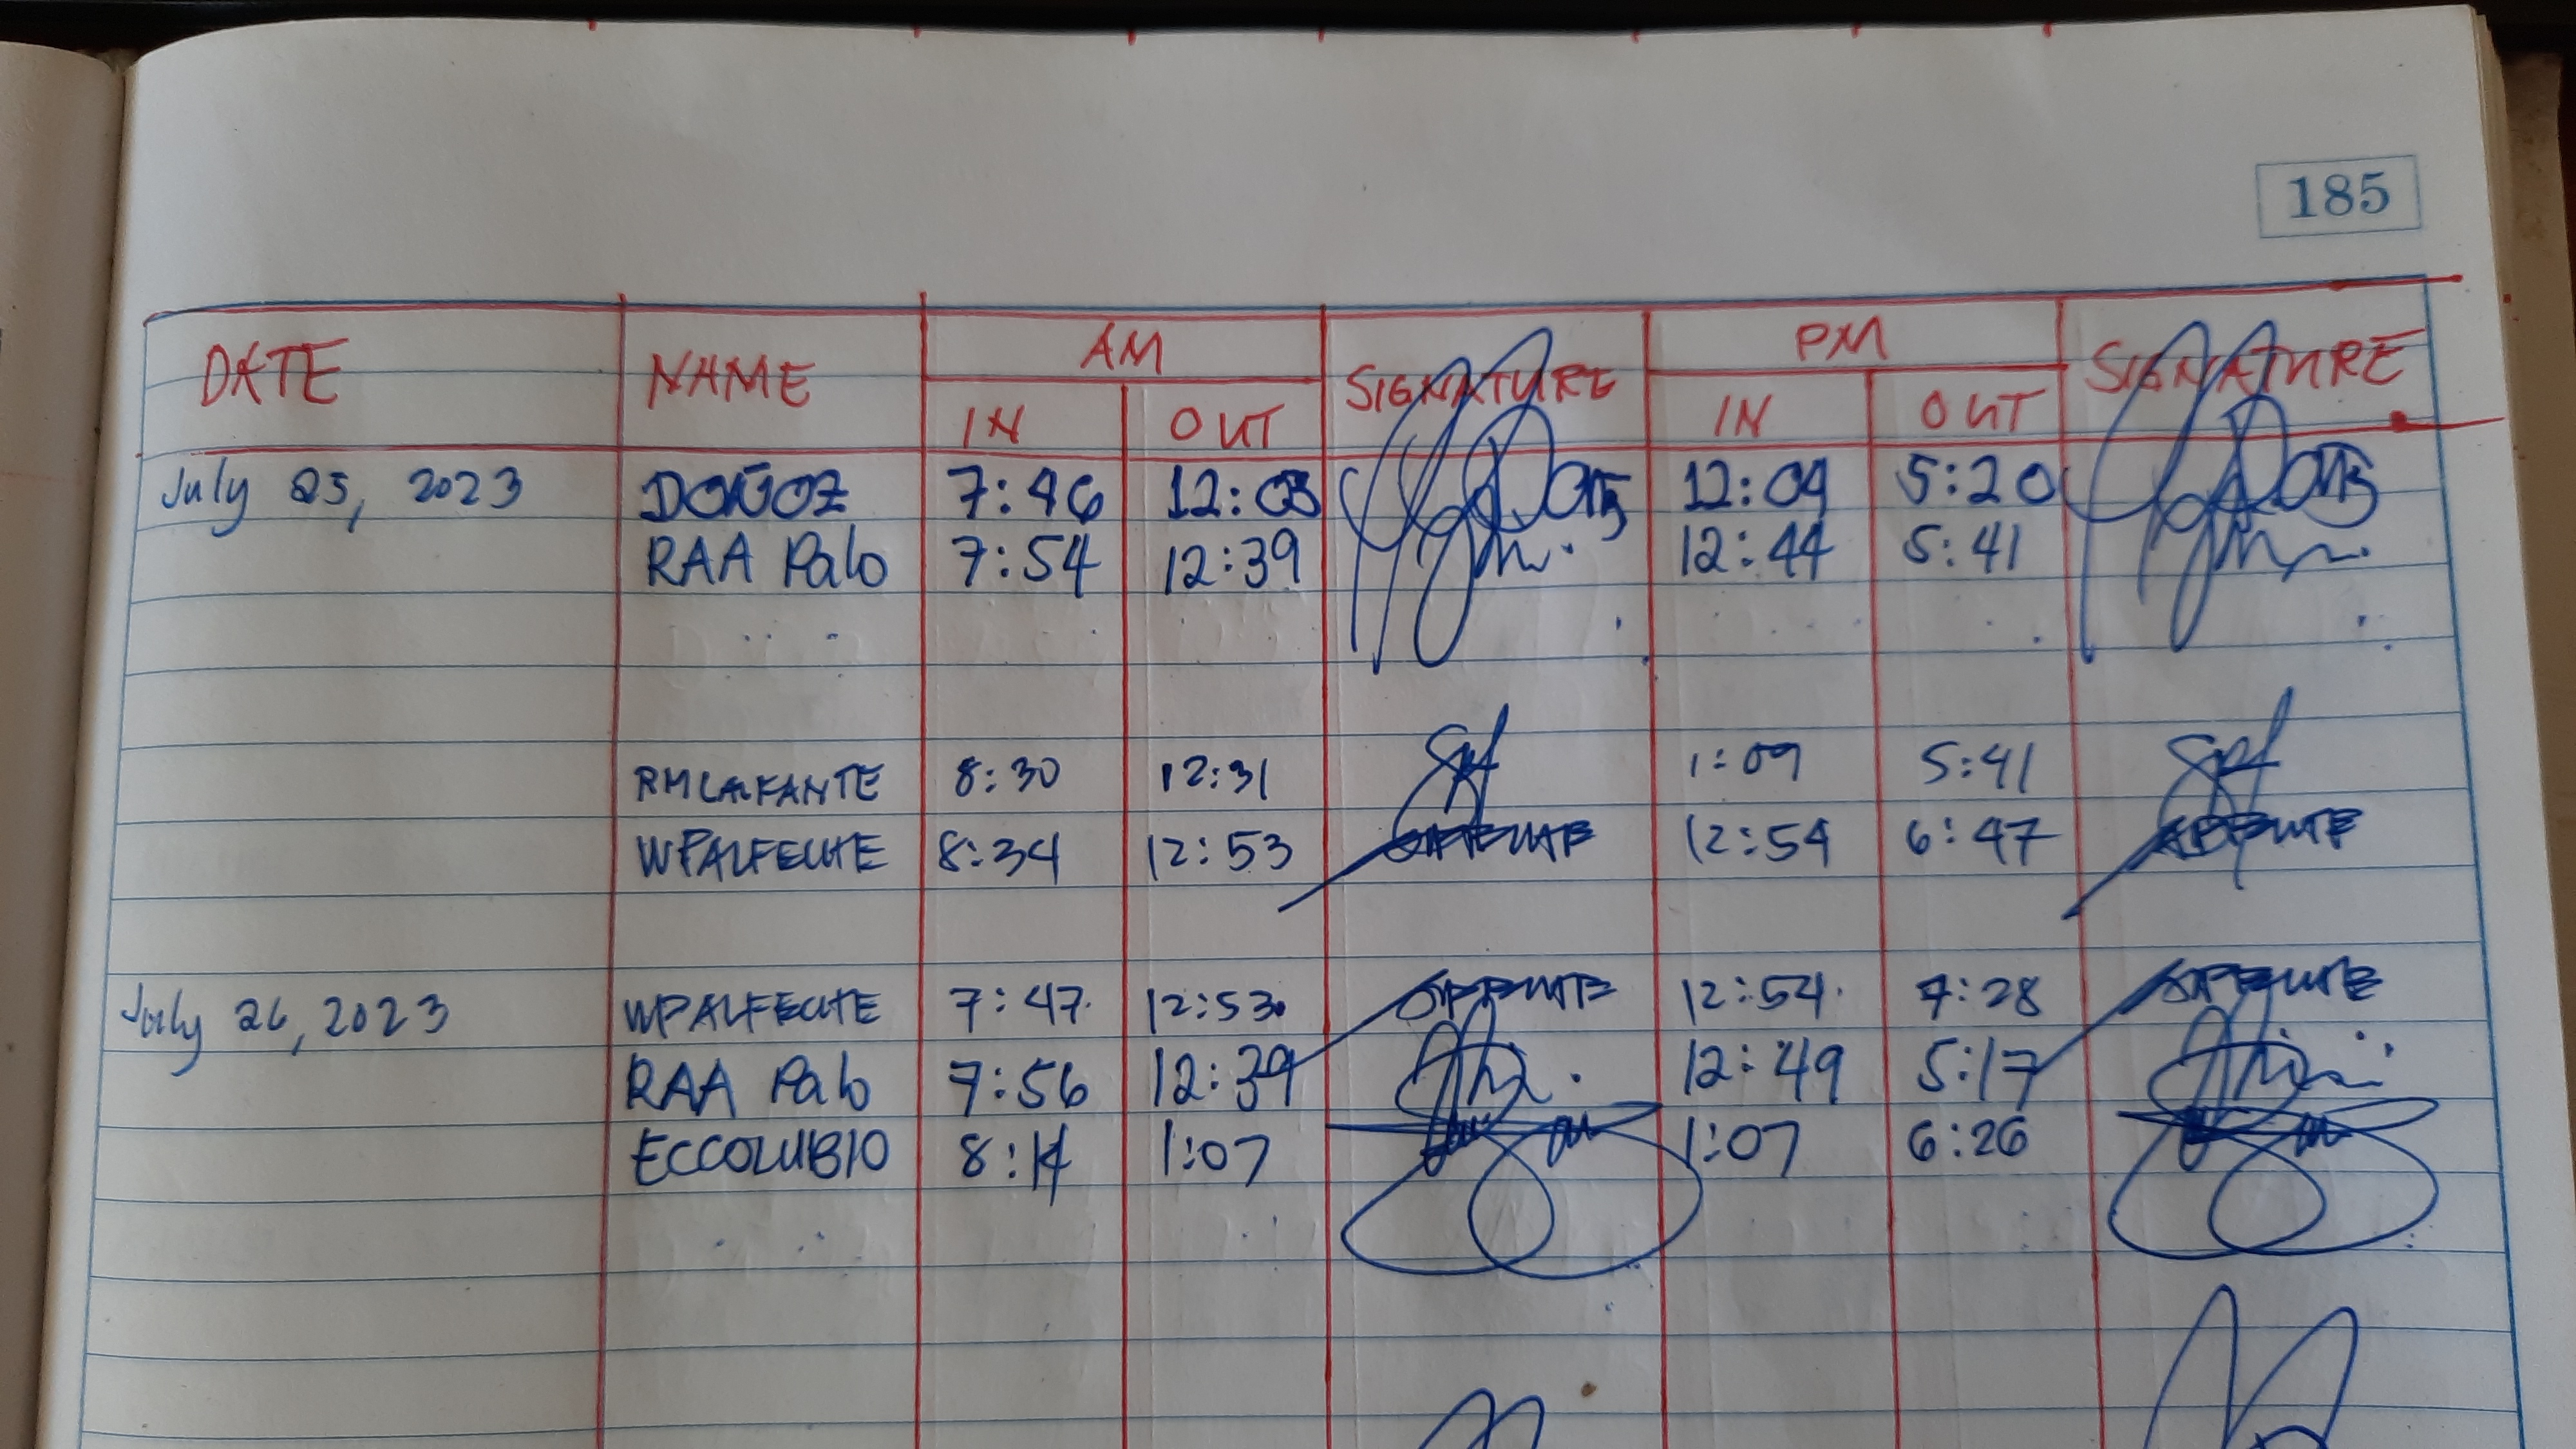 185
DATE NAME AM SIGNATURE PM SIGNATURE
IN OUT IN OUT
July 25, 2023 DOÑOZ 7:46 12:03 12:04 5:20
RAA Palo 7:54 12:39 12:44 5:41
RMCALFANTE 8:30 12:31 1:09 5:41
WPALFECHE 8:34 12:53 12:54 6:47
July 26, 2023 WPALFECHE 7:47 12:53 12:54 4:28
RAA Palo 7:56 12:39 12:49 5:17
ECCOLUBIO 8:14 1:07 1:07 6:26